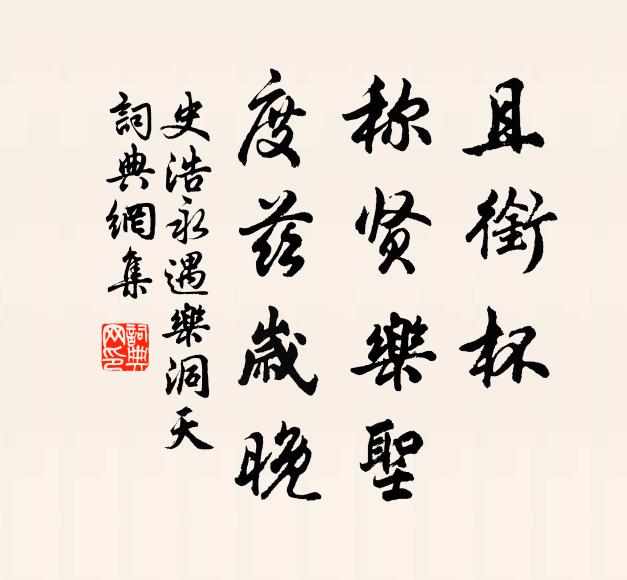 且銜杯
称贤樂聖
度茲歲晚
史浩永遇樂洞天
詞典網集
詞典網印